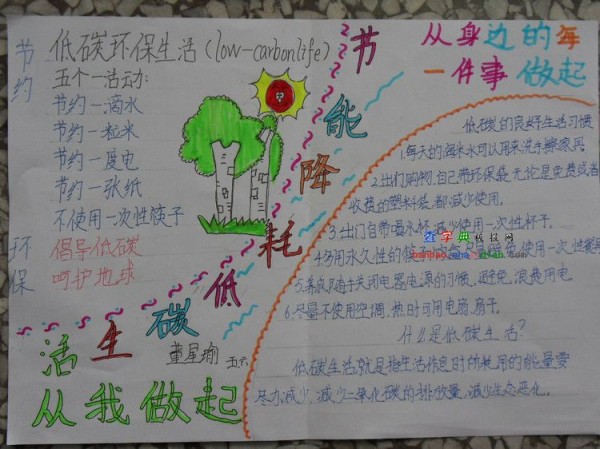 节约
环保
低碳环保生活(low-carbonlife)
五个一活动:
节约一滴水
节约一粒米
节约一度电
节约一张纸
不使用一次性筷子
倡导低碳
呵护地球
节能降耗低碳生活
从我做起
五六
从身边的每
一件事做起
低碳的良好生活习惯
1.每天的淘米水可以用来洗手擦家具
2.出门购物,自己带环保袋,无论是免费或者
收费的塑料袋,都减少使用。
3.出门自带喝水杯,减少使用一次性杯子。
4.多用永久性的筷子、使用一次性餐具
5.养成随手关闭电器电源的习惯,避免浪费用电
6.尽量不使用空调,热时可用电扇,扇子。
什么是低碳生活?
低碳生活,就是指生活作息时所耗用的能量要
尽力减少,减少二氧化碳的排放量,减少生态恶化。